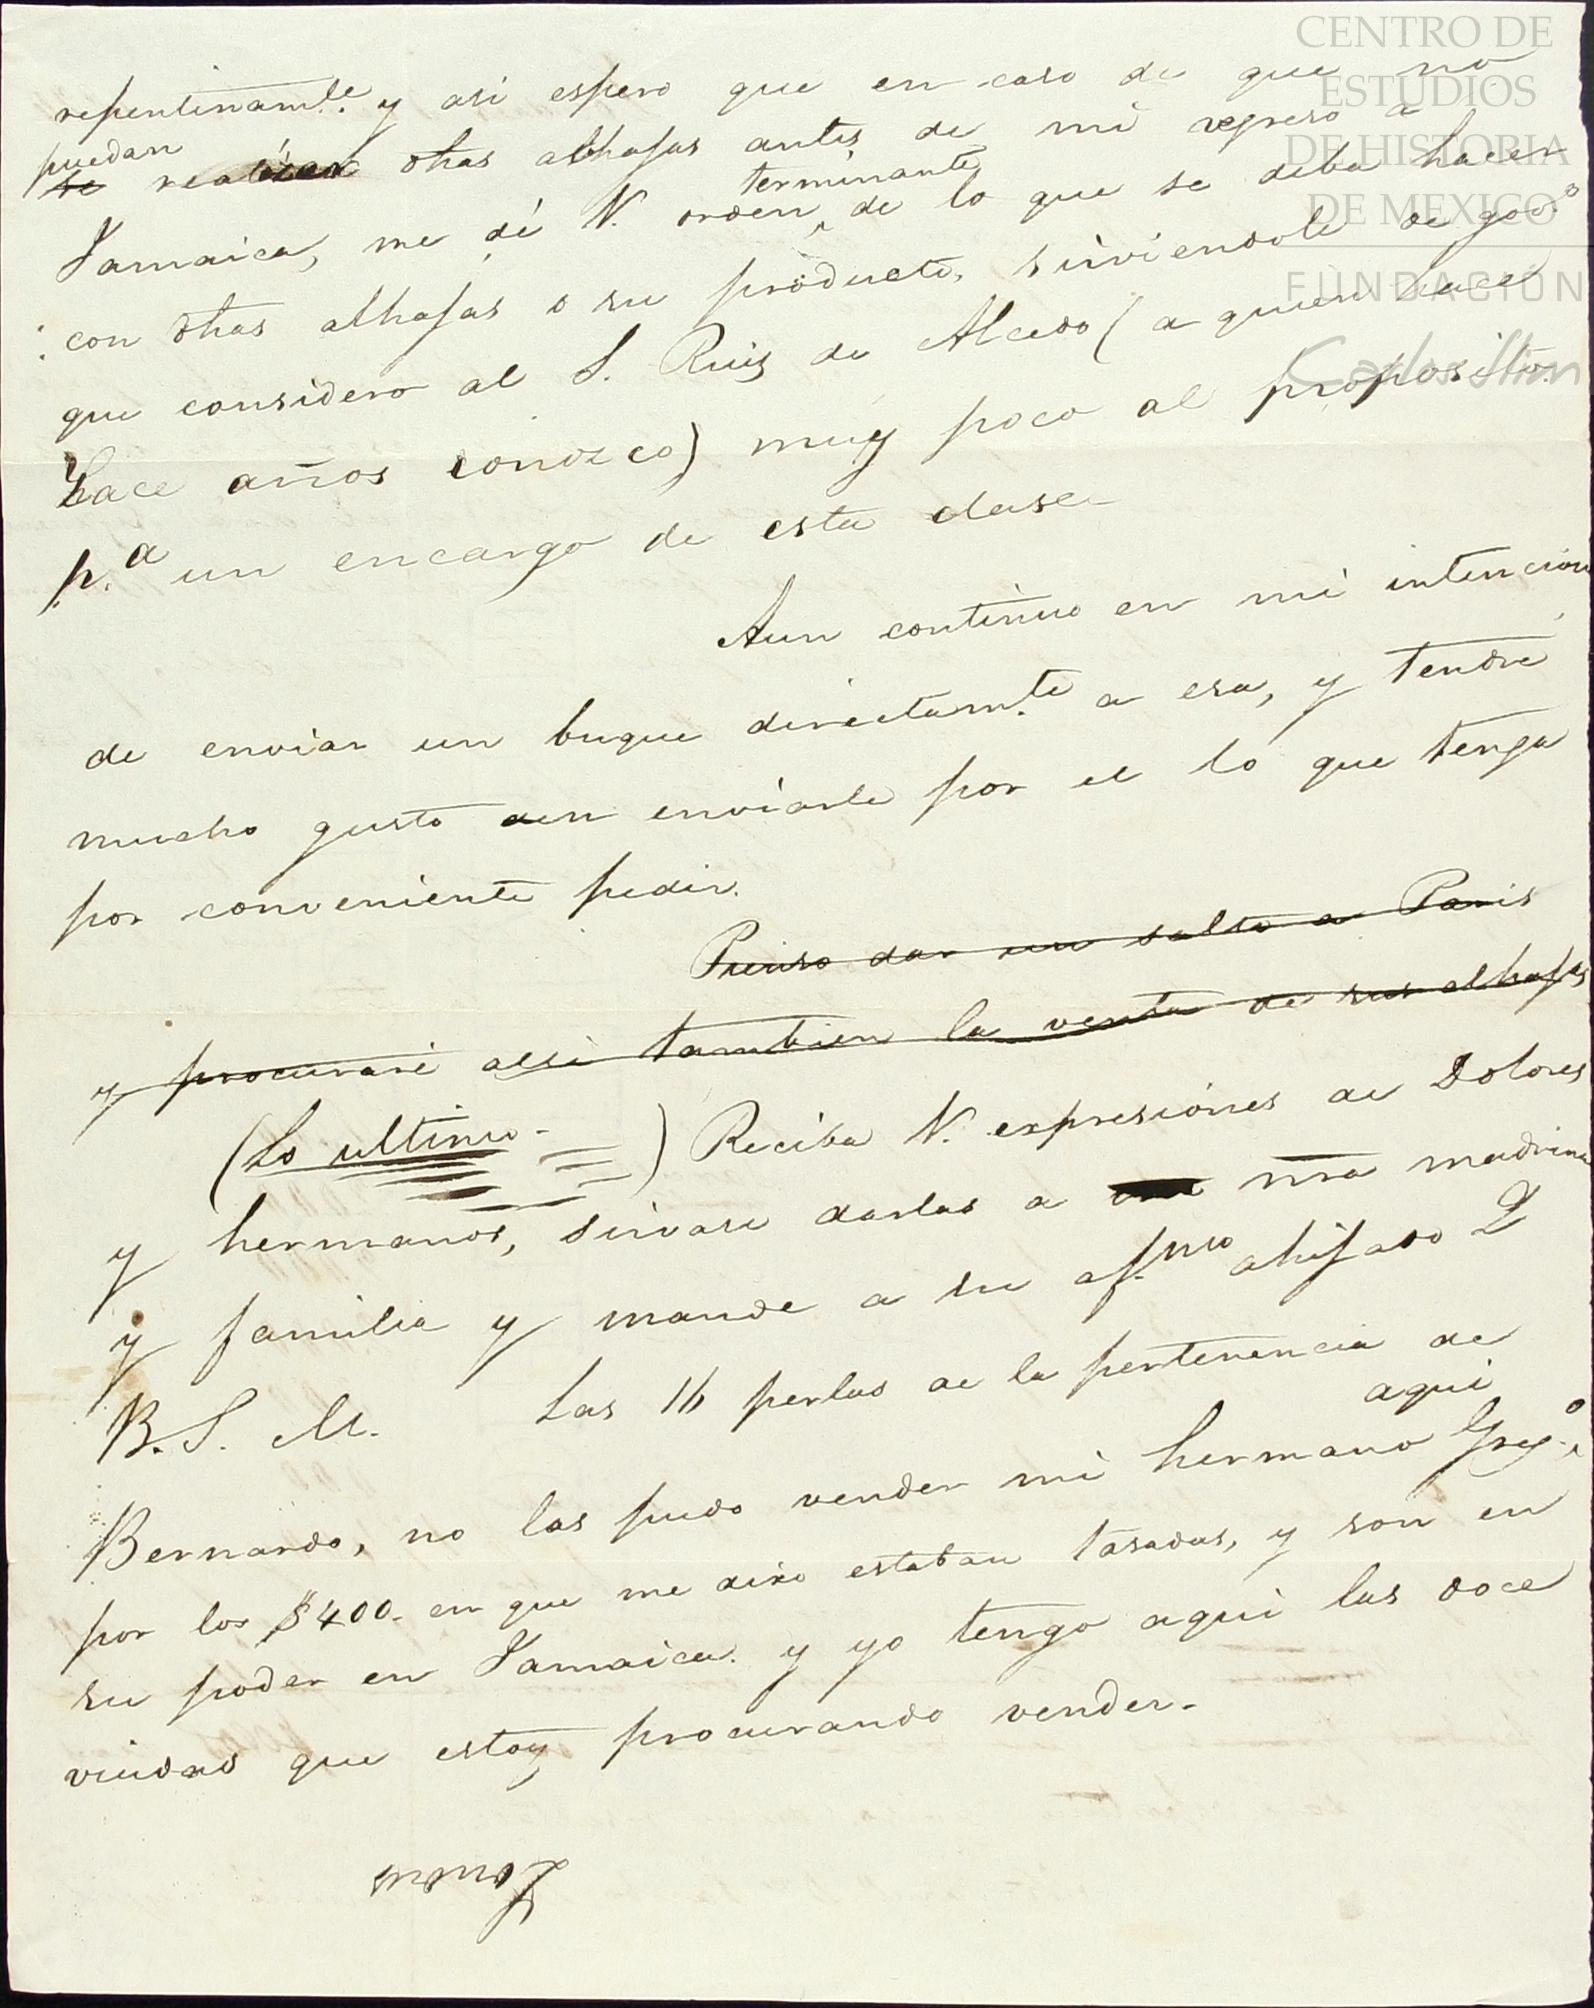 CENTRO DE
ESTUDIOS
DE HISTORIA
DE MEXICO
FUNDACIÓN
Carlos Slim
repentinam.te y asi espero que en caso de que no
puedan
se realizar dhas alhajas antes de mi regreso a
terminante
Jamaica, me dé V. orden de lo que se deba hacer
con dhas alhajas o su producto, sirviendole de gov.no
que considero al S. Ruiz de Alcedo (a quien hace
hace años conozco) muy poco al proposito
p.a un encargo de esta clase
Aun continuo en mi intencion
de enviar un buque directam.te a esa, y tendré
mucho gusto en enviarle por el lo que tenga
por conveniente pedir.
Pienso dar un salto a Paris
y procuraré alli tambien la venta de sus alhajas
(Lo ultimo) Reciba V. expresiones de Dolores
y hermanos, sirvase darlas a nra madrina
y familia y mande a su af.mo ahijado Q
B. S. M. Las 16 perlas de la pertenencia de
aqui
Bernardo, no las pudo vender mi hermano Greg.o
por los $400. en que me dixo estaban tasadas, y son en
su poder en Jamaica. y yo tengo aqui las doce
viudas que estoy procurando vender.